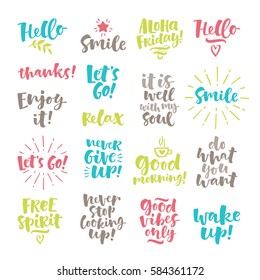 Hello
Smile
Aloha
Friday!
Hello
thanks!
Let's
GO!
it is
well
with my
soul
Smile
Enjoy
it!
Relax
Let's Go!
never
GIVE
UP!
good
morning!
do
what
you
want
FREE
SPIRIT
never
stop
looking
up!
Good
vibes
only
wake
up!
shutterstock.com · 584361172